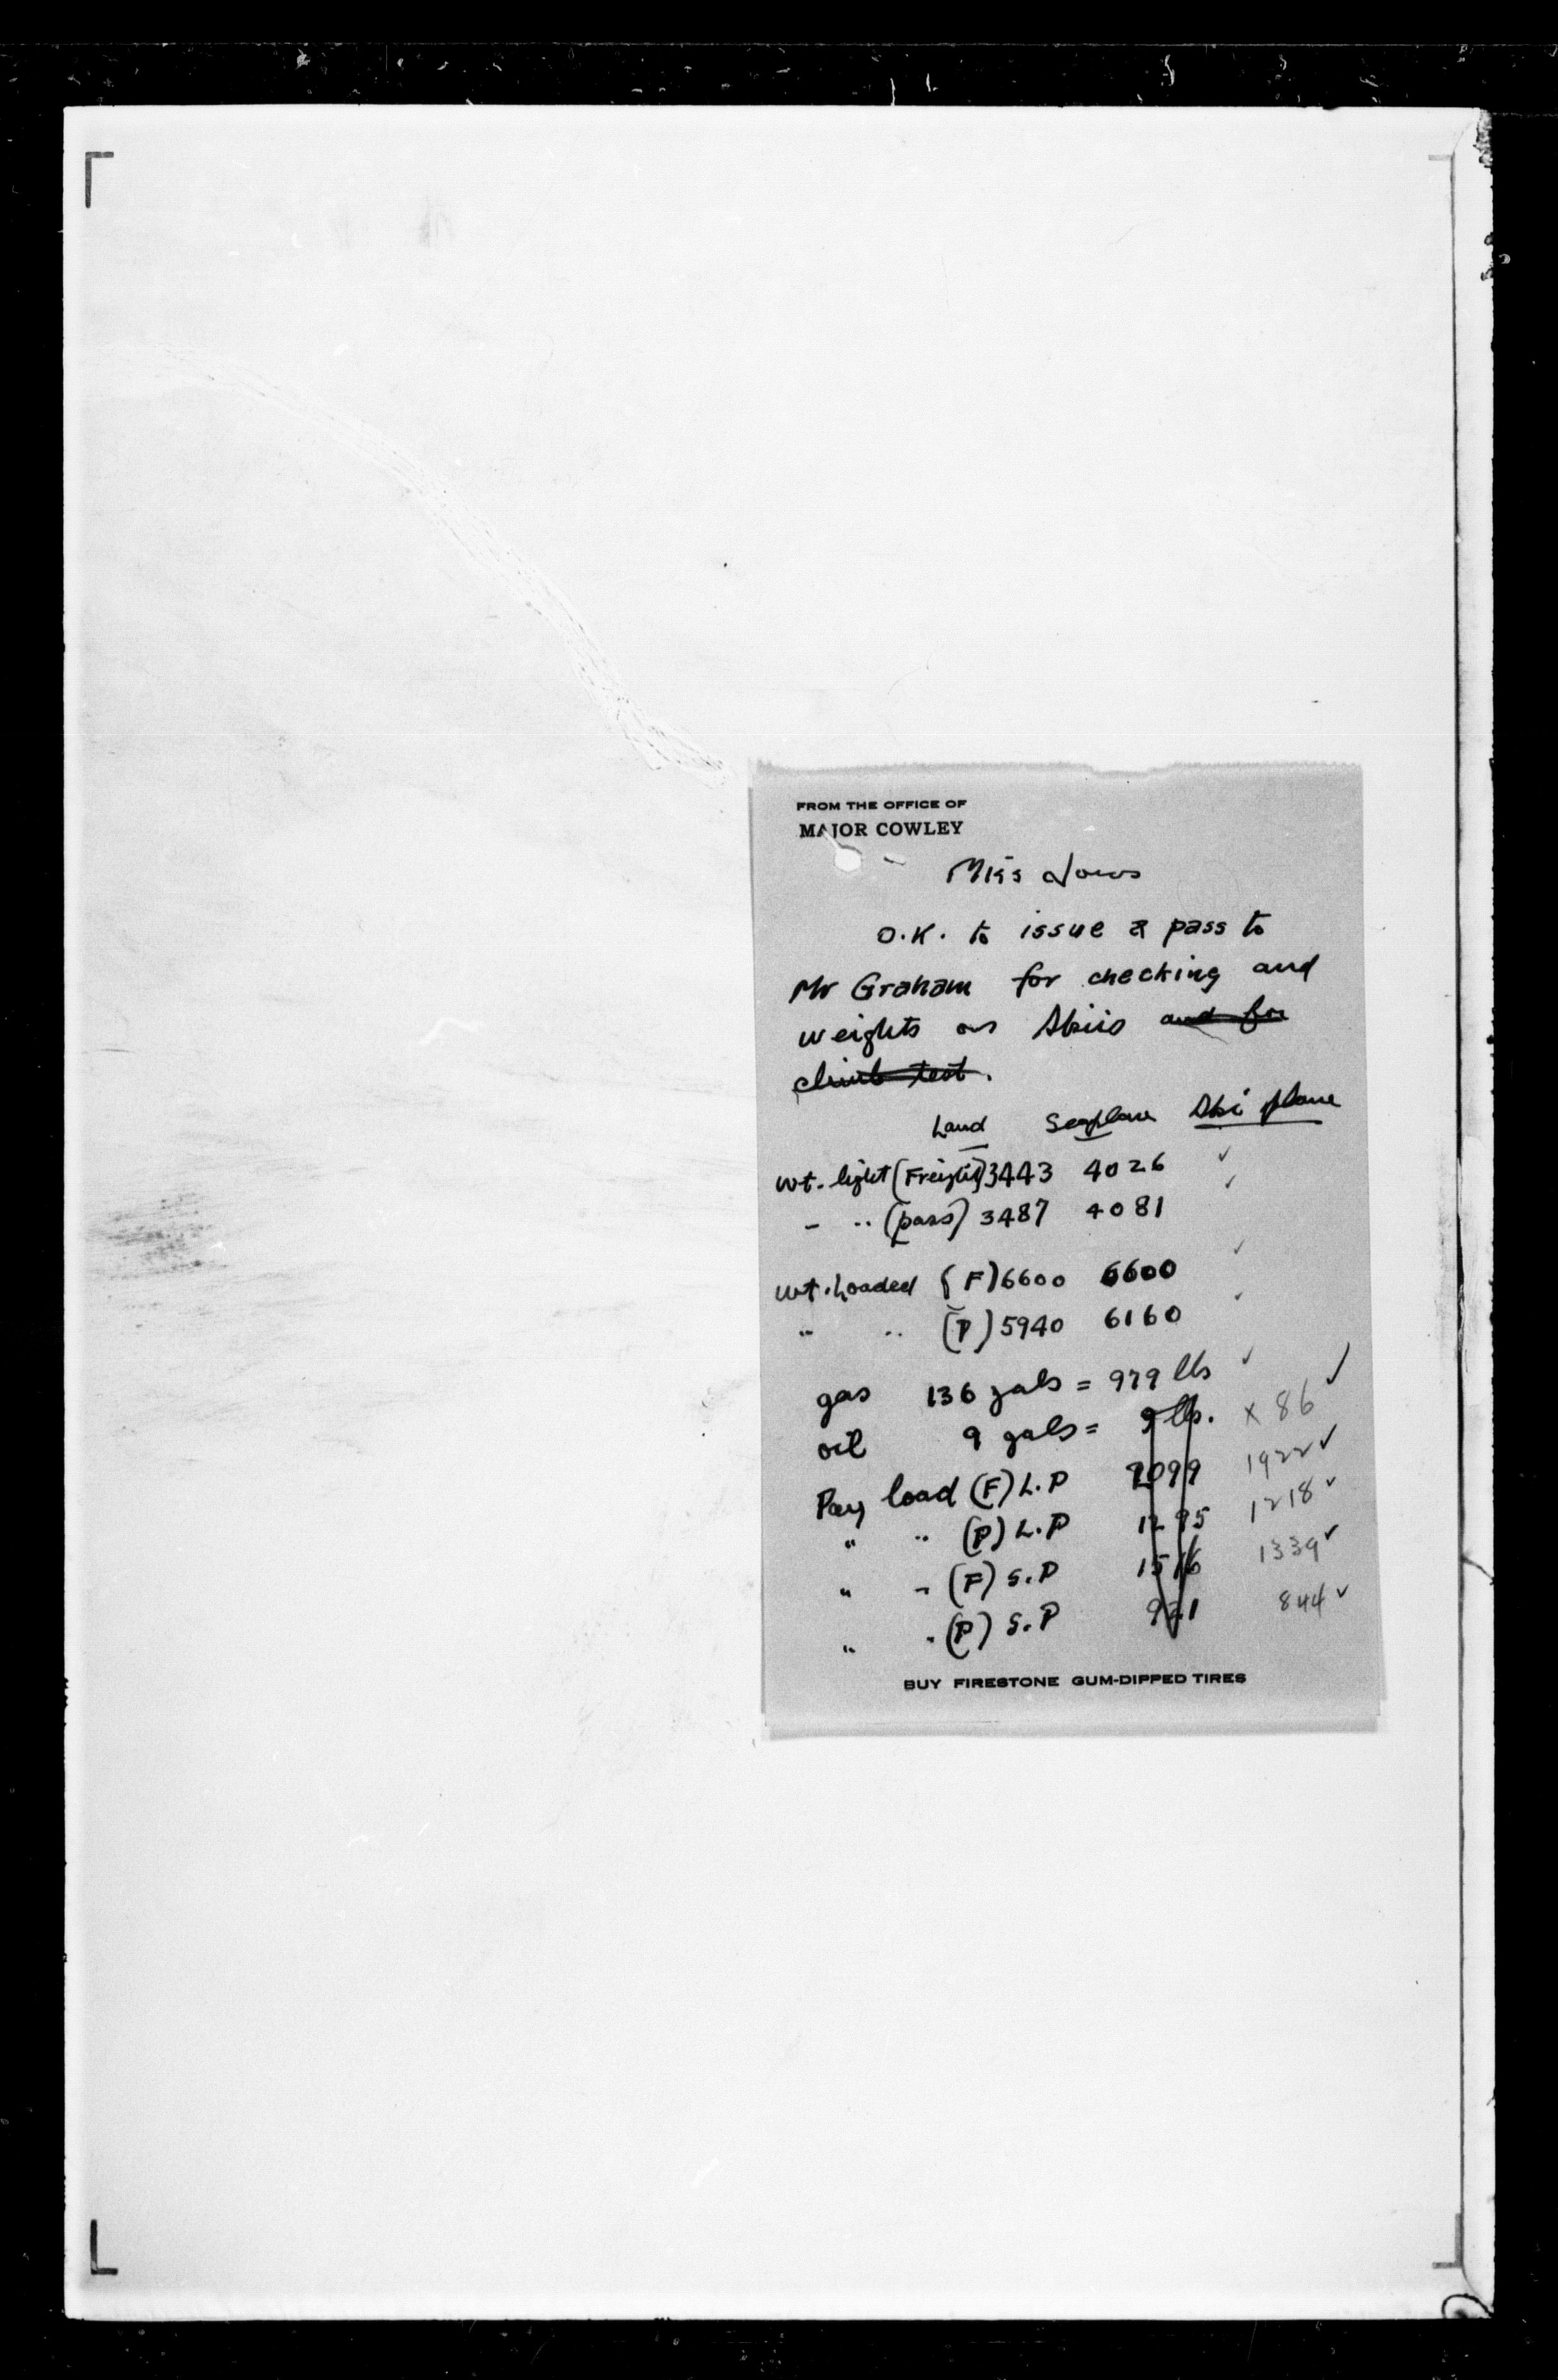 FROM THE OFFICE OF
MAJOR COWLEY
Miss
O.K. to issue a pass to
Mr Graham for checking and
weights on Skiis and for
climb test.
Land Seaplane Ski plane
Wt. light (Freight) 3443 4026 ✓
- " (pass) 3487 4081 ✓
Wt. Loaded (F) 6600 6600 ✓
" " (P) 5940 6160 ✓
gas 136 gals = 979 lbs ✓ ✓
oil 9 gals = 9 lbs. x 86
Pay load (F) L.P 2099 1922 ✓
" " (P) L.P 1295 1218 ✓
" " (F) S.P 1516 1339 ✓
" " (P) S.P 921 844 ✓
BUY FIRESTONE GUM-DIPPED TIRES